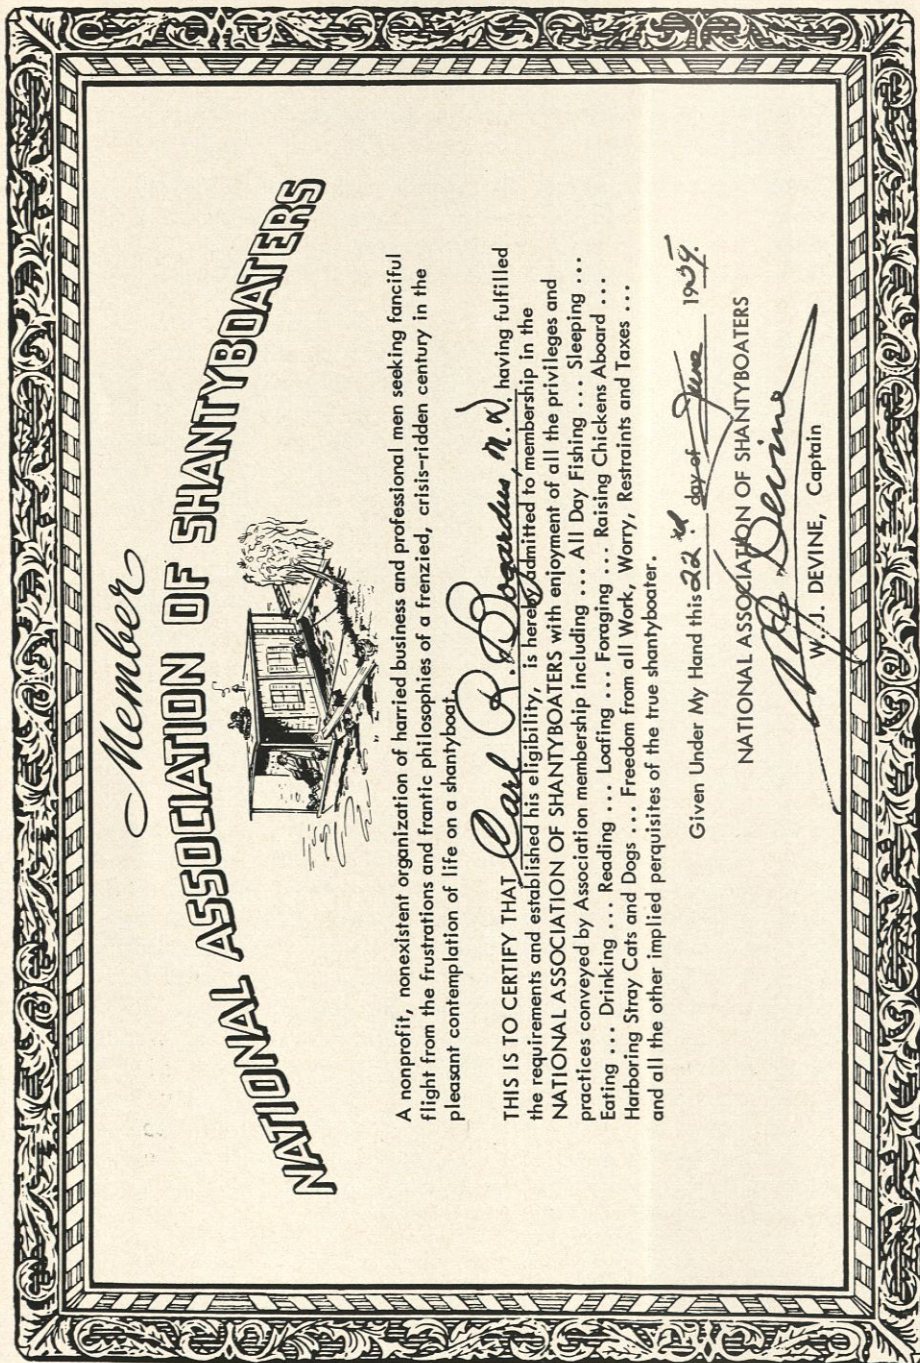 Member
NATIONAL ASSOCIATION OF SHANTYBOATERS
A nonprofit, nonexistent organization of harried business and professional men seeking fanciful
flight from the frustrations and frantic philosophies of a frenzied, crisis-ridden century in the
pleasant contemplation of life on a shantyboat.
THIS IS TO CERTIFY THAT Carl R. Bogardus, M.D. having fulfilled
the requirements and established his eligibility, is hereby admitted to membership in the
NATIONAL ASSOCIATION OF SHANTYBOATERS with enjoyment of all the privileges and
practices conveyed by Association membership including ... All Day Fishing ... Sleeping ...
Eating ... Drinking ... Reading ... Loafing ... Foraging ... Raising Chickens Aboard ...
Harboring Stray Cats and Dogs ... Freedom from all Work, Worry, Restraints and Taxes ...
and all the other implied perquisites of the true shantyboater.
Given Under My Hand this 22 day of June
NATIONAL ASSOCIATION OF SHANTYBOATERS
W. J. Devine
W. J. DEVINE, Captain